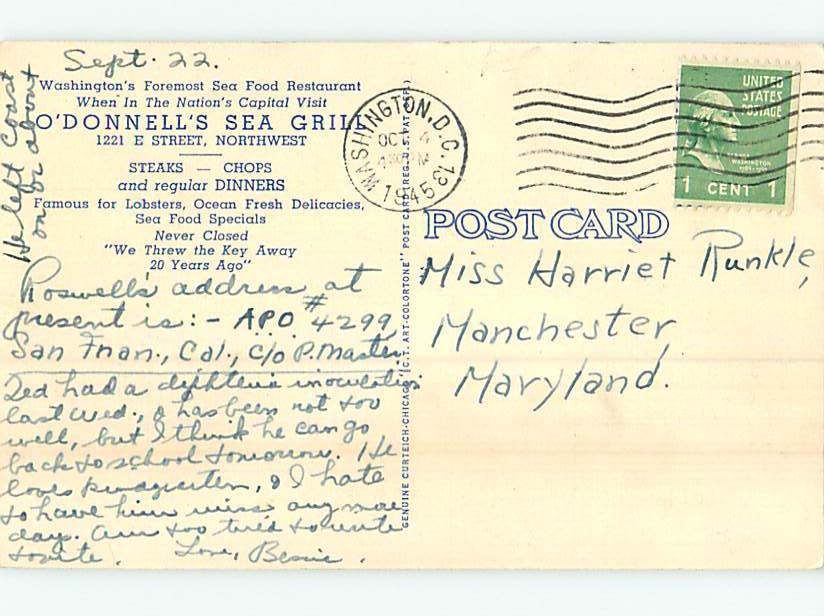 Sept. 22.
He left Coast
on or about
Washington's Foremost Sea Food Restaurant
When In The Nation's Capital Visit
O'DONNELL'S SEA GRILL
1221 E STREET, NORTHWEST
STEAKS — CHOPS
and regular DINNERS
Famous for Lobsters, Ocean Fresh Delicacies,
Sea Food Specials
Never Closed
"We Threw the Key Away
20 Years Ago"
Roswell's address at
present is:- APO #4299,
San Fran., Cal., c/o P. Master
Ted had a diphtheria inoculation
last Wed., & has been not too
well, but I think he can go
back to school tomorrow. He
loves kindergarten, & I hate
to have him miss any more
days. Am too tired to write
to-nite. Love, Bessie.
GENUINE CURTEICH-CHICAGO "C.T. ART-COLORTONE" POST CARD (REG. U.S. PAT. OFF.)
WASHINGTON, D.C. 13
OCT 4
PM
1945
UNITED
STATES
POSTAGE
WASHINGTON
1 CENT 1
POST CARD
Miss Harriet Runkle,
Manchester,
Maryland.